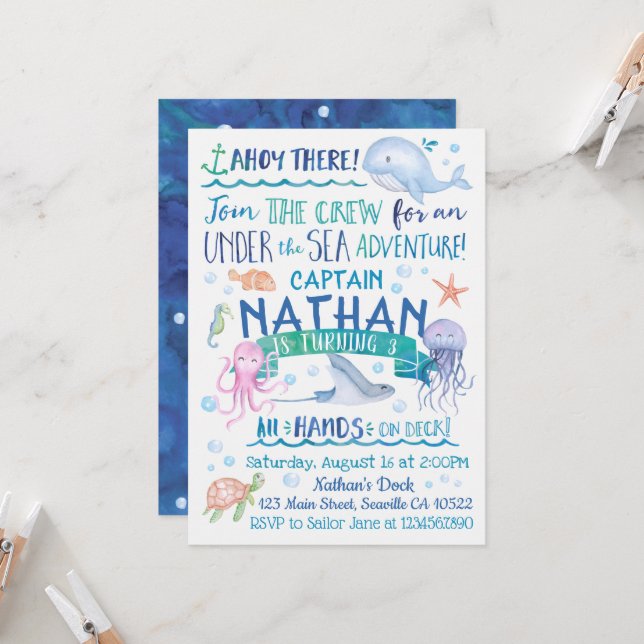 AHOY THERE!
Join THE CREW for an
UNDER the SEA ADVENTURE!
CAPTAIN
NATHAN
IS TURNING 3
All HANDS ON DECK!
Saturday, August 16 at 2:00PM
Nathan's Dock
123 Main Street, Seaville CA 10522
RSVP to Sailor Jane at 1234567890